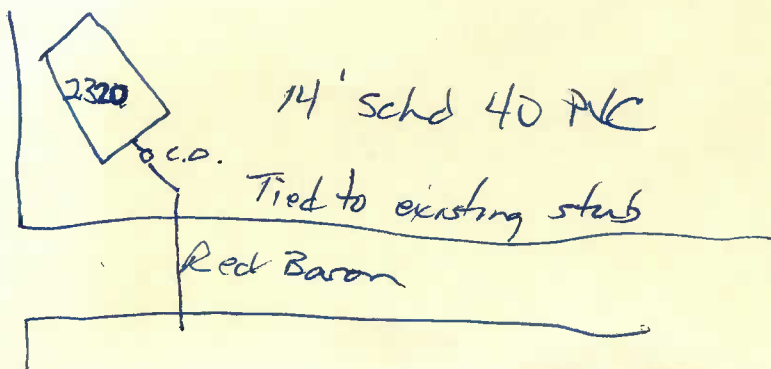 2320
14' Schd 40 PVC
C.O.
Tied to existing stub
Red Baron